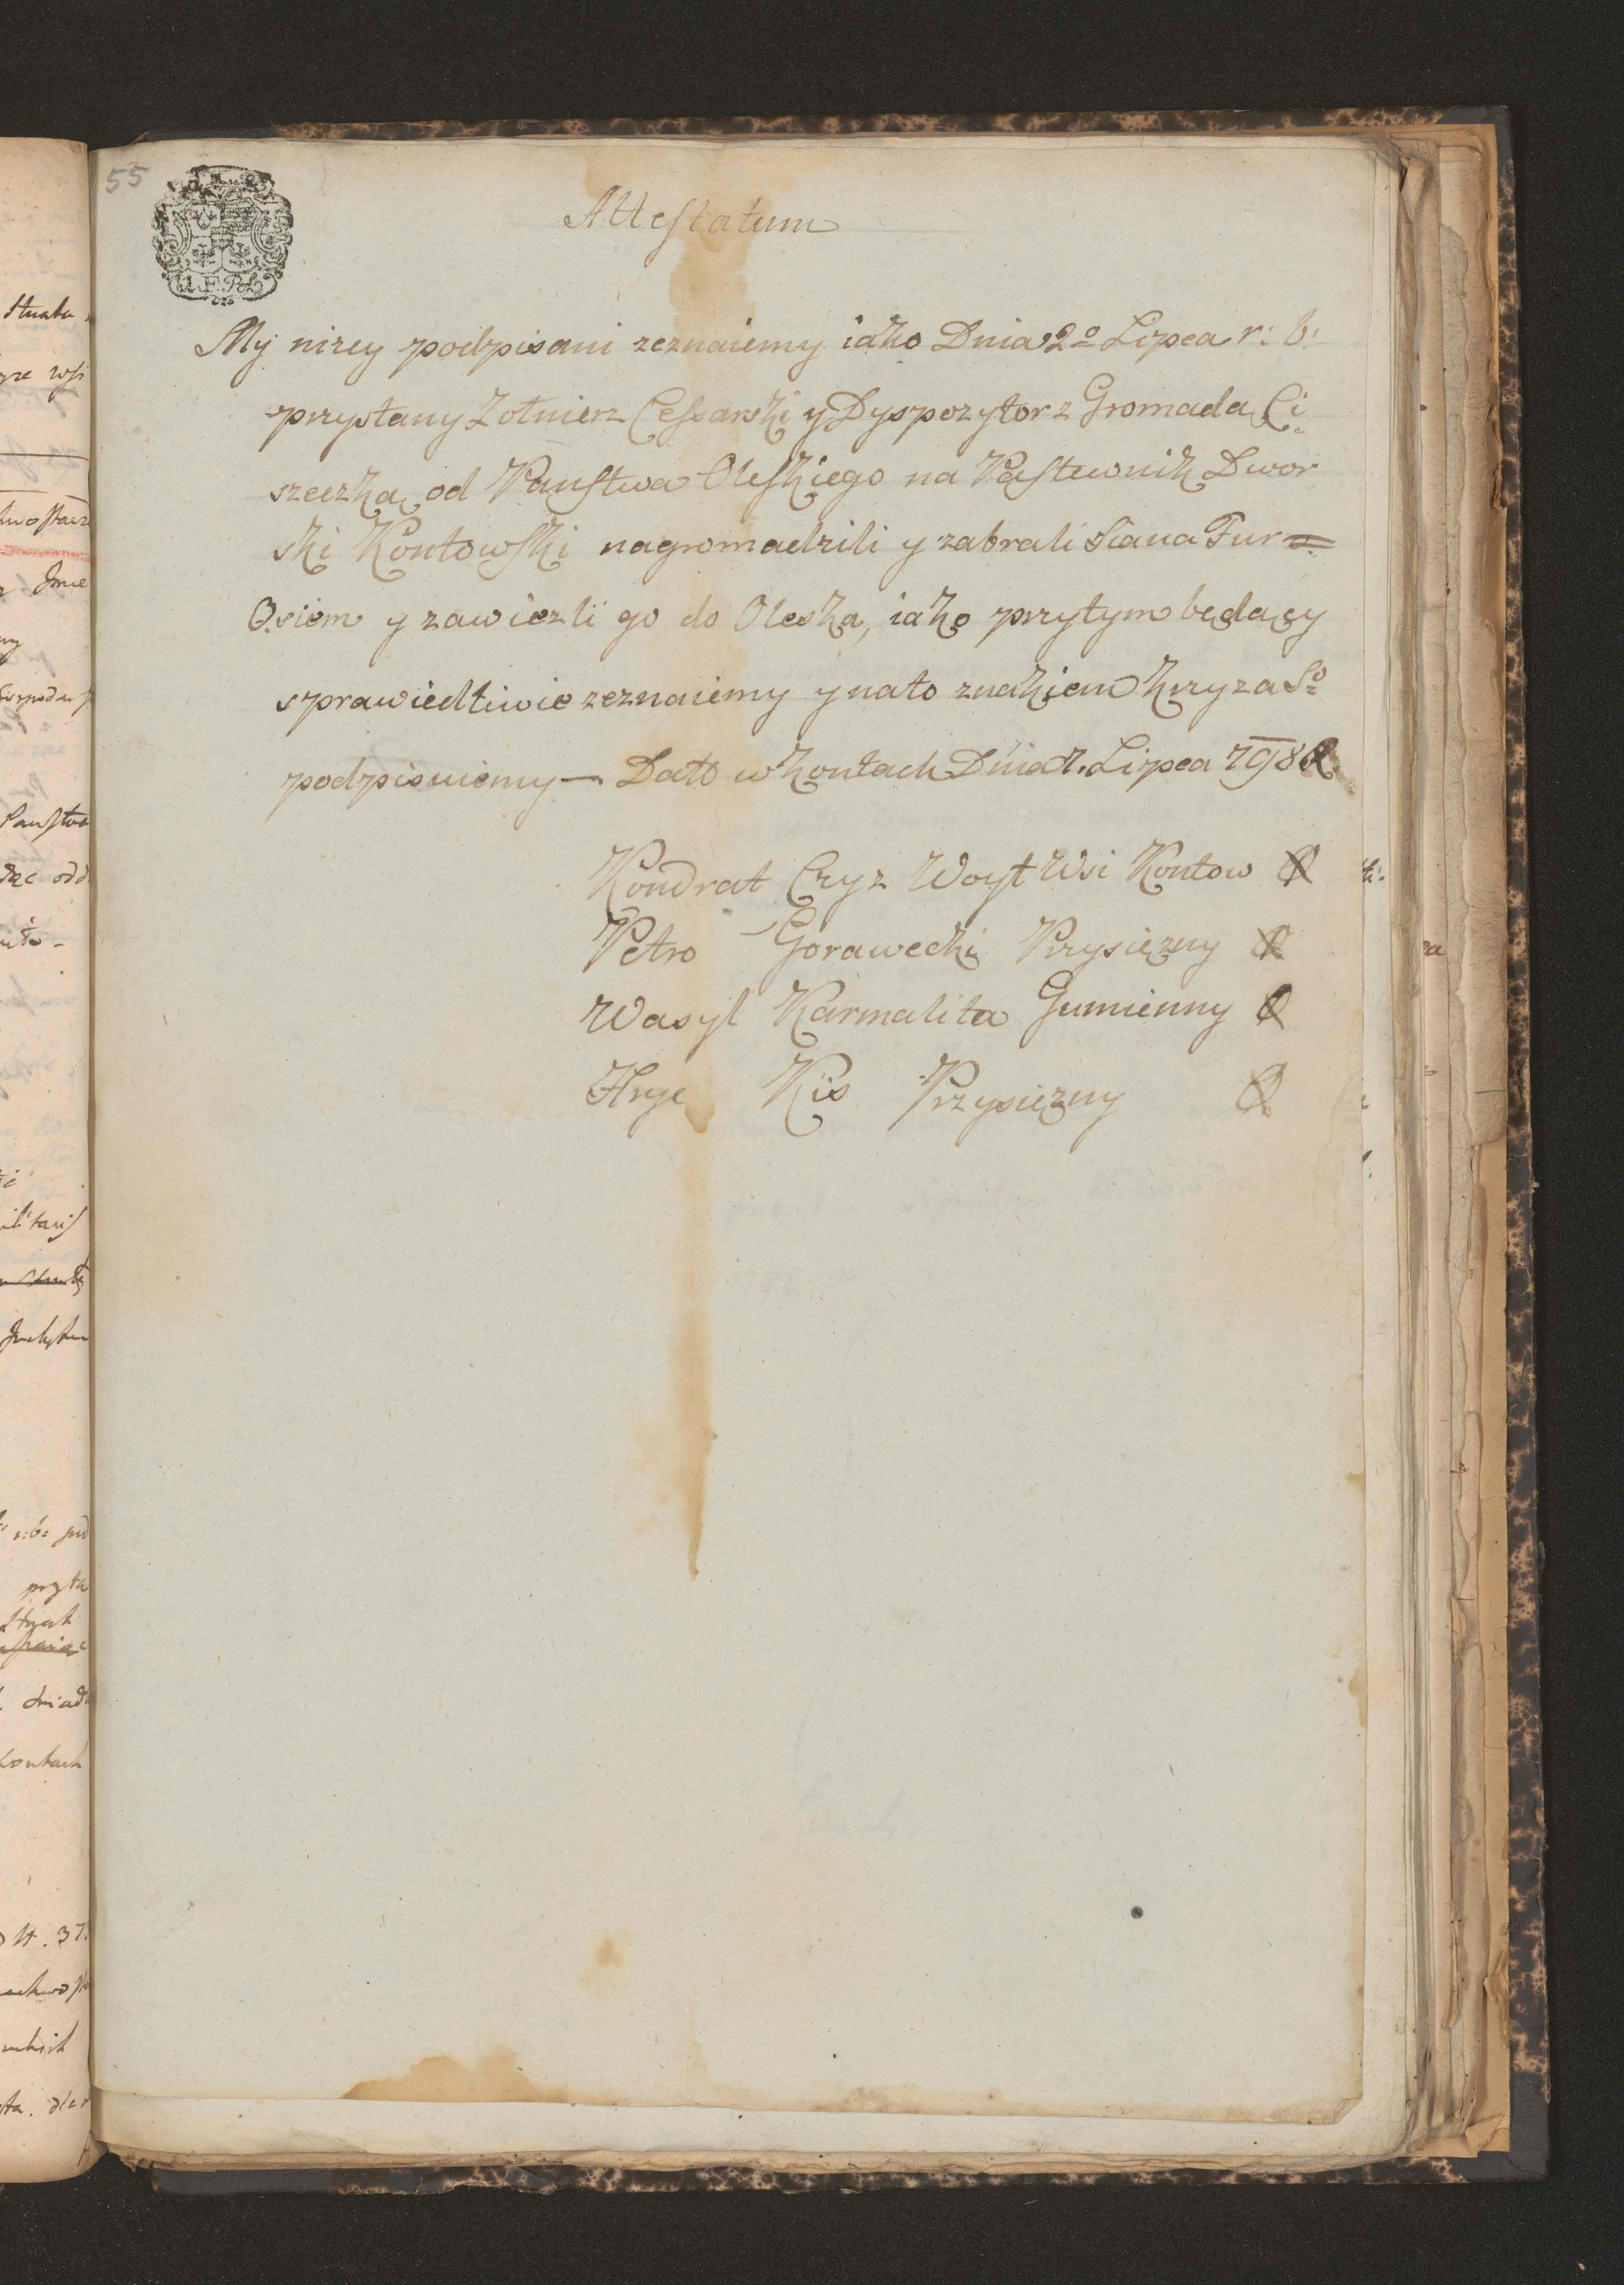 55
Attestatum
My nizey podpisani zeznaiemy iako Dnia 2º Lipca r: b:
przystany Zołnierz Cessarski y Dyspozytor z Gromadą Ci=
szeczką od Panstwa Oleskiego na Pastewnik Dwor
ski Kontowski nagromadzili y zabrali Siana Fur =
Osiem y zawiezli go do Oleska, iako przytym będący
sprawiedliwie zeznaiemy y nato znakiem krzyza Sº
podpisuiemy — Dato w kontach Dnia 7. Lipca
Kondrat Cryz Woyt Wsi Kontow
Petro Gorawecki Przysięzny
Wasyl Karmalita Gumienny
Kis Przysięzny